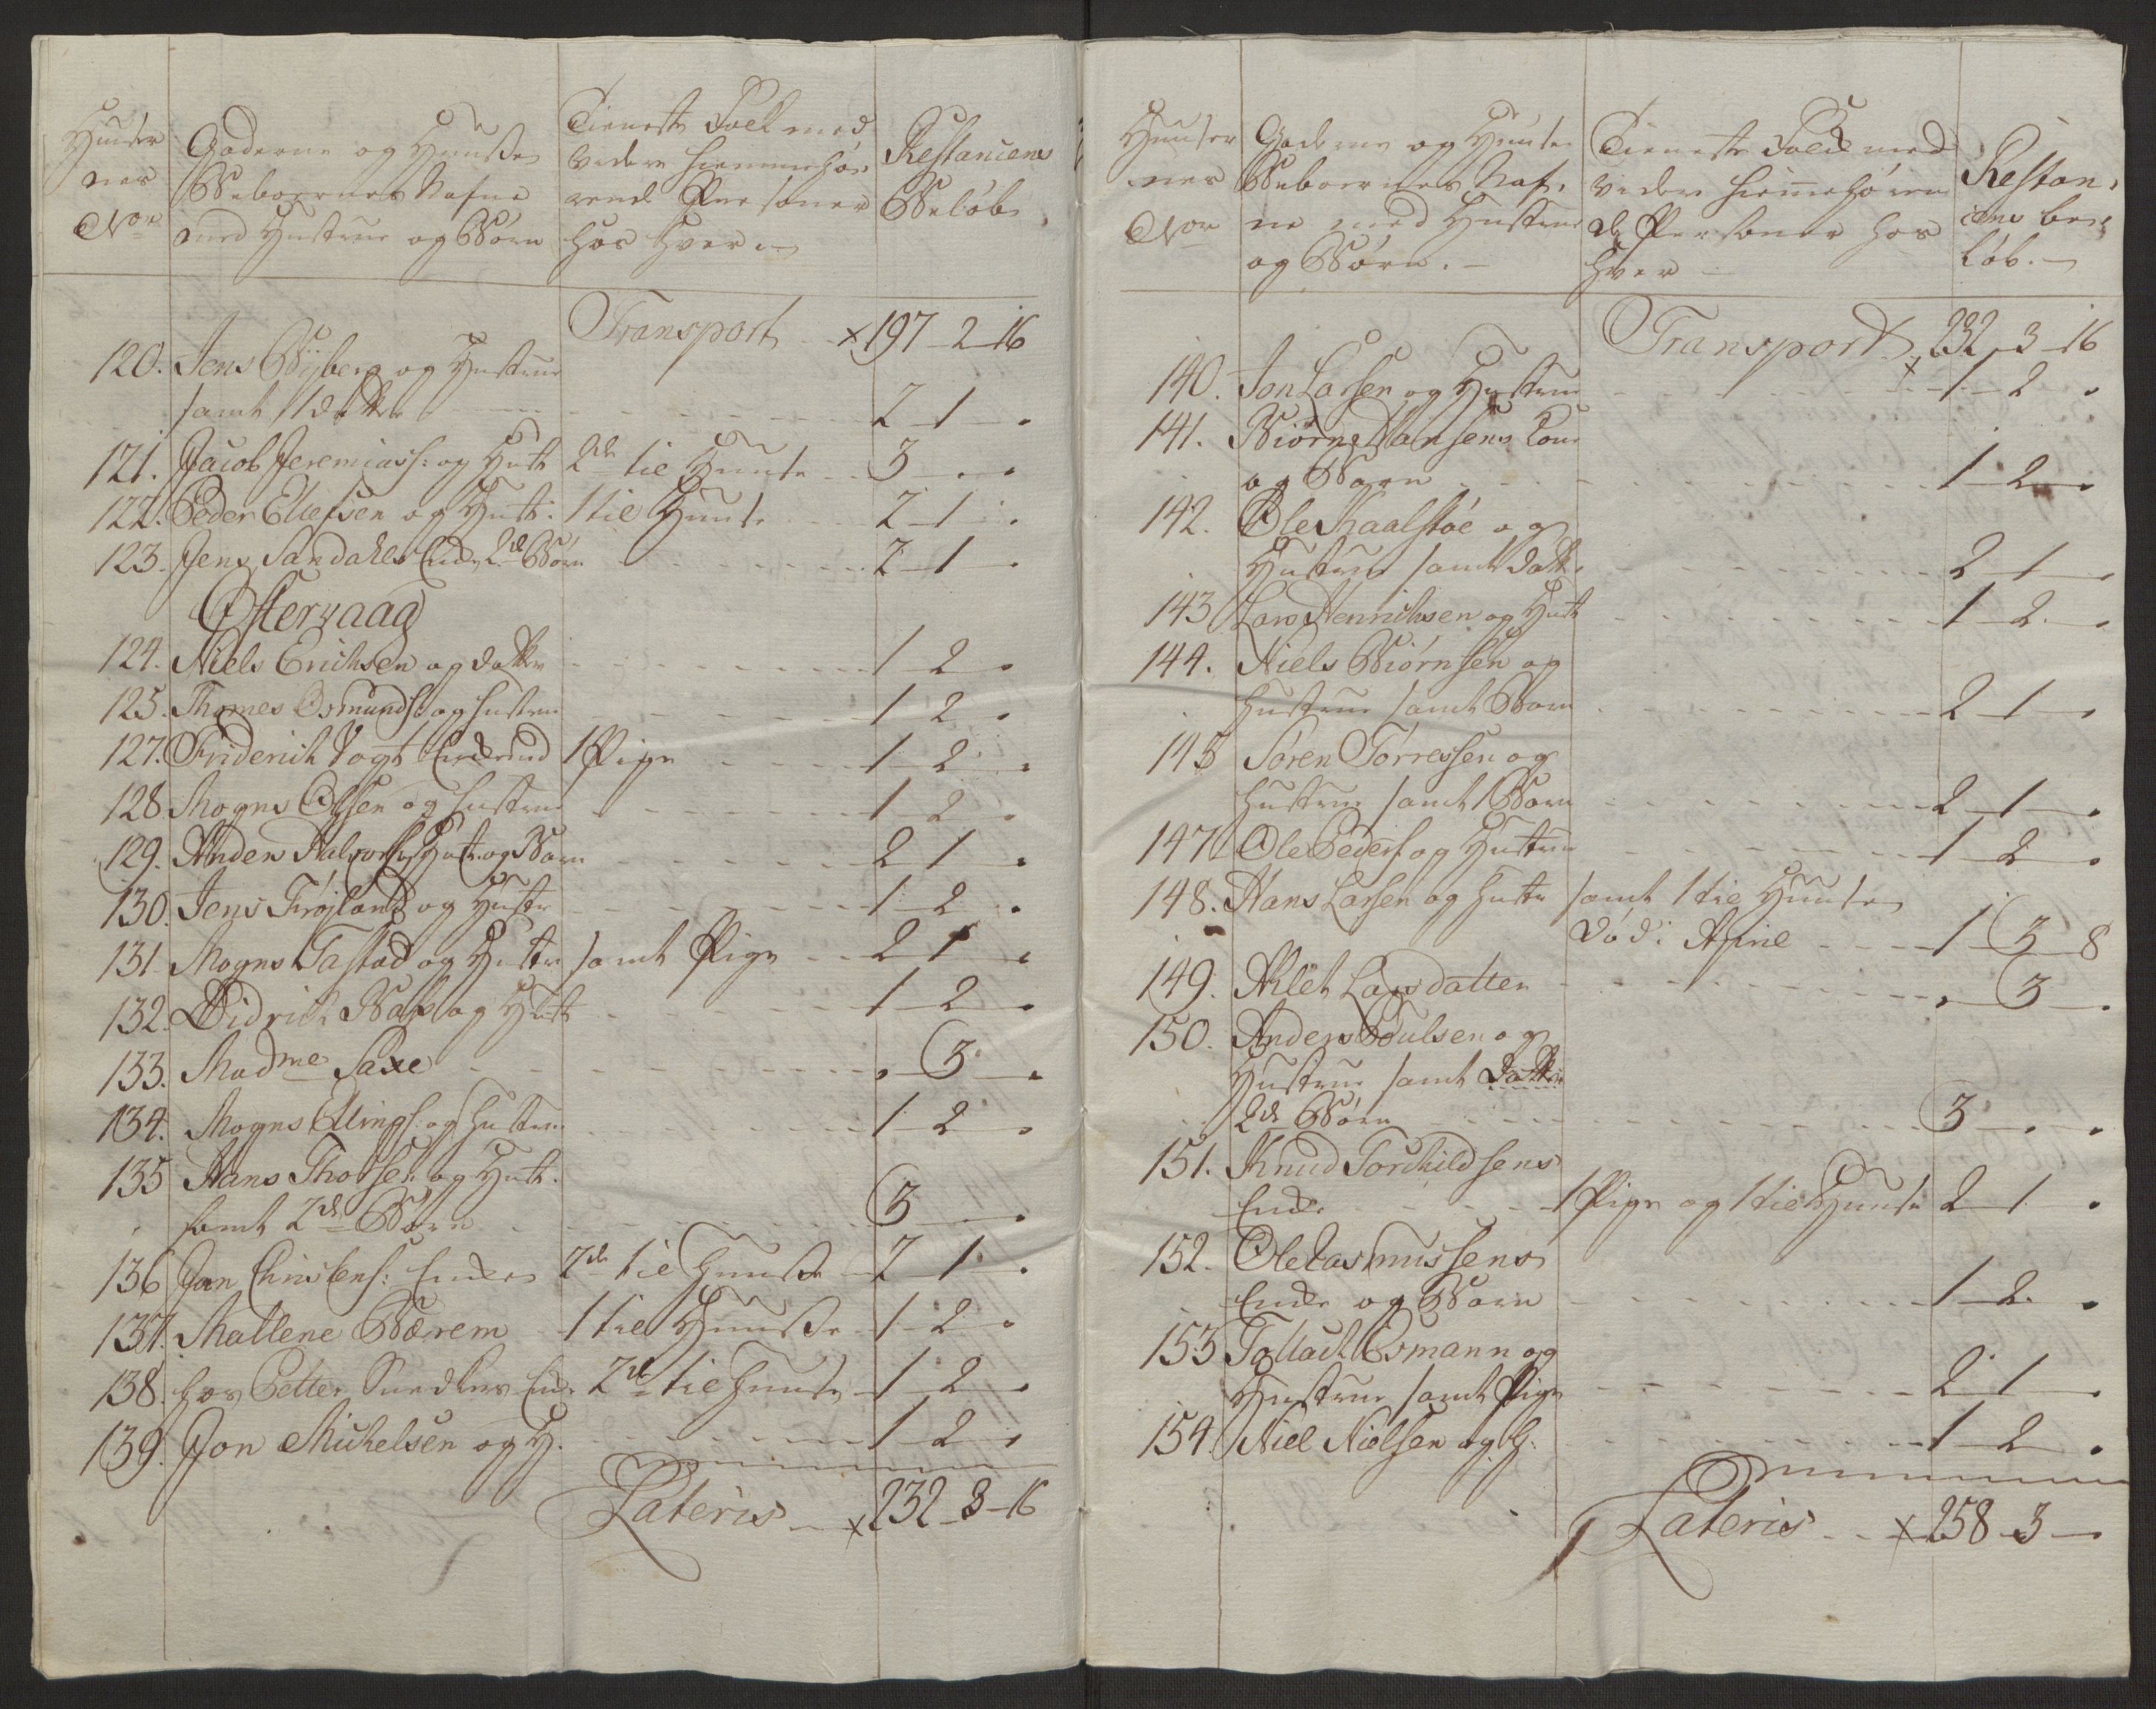 Huuser
nes
No
Gaderne og Huuse
Beboernes Nafne
med Hustrue og Børn
Tieneste Folck med
videre hiemmehør
rende Personer
hos hver
Restancens
Beløb
Transport x 197 - 2 - 16
120. Jens Byberg og Hustrue
samt 1 datter 2 - 1 -
121. Jacob Jeremias: og Hust 2de til Huuse 3 - -
122. Peder Ellefsen og Hust: 1 til Huuse 2 - 1 -
123. Jens Sandahls Enke 2de Børn 2 - 1 -
Østervaag
124. Niels Erichsen og datter 1 - 2 -
125. Thomes Osmunds: og hustrue 1 - 2 -
127. Friderich Vogt 1 Pige 1 - 2 -
128 Mogns Olsen og hustrue 1 - 2 -
129. Anders Halvors: Hust: og Barn 2 - 1 -
130. Jens Frøjland og Hustr 1 - 2 -
131 Mogns Tastad og Hustr samt Pige 2 - 1 -
132. Didrich og Hust 1 - 2 -
133. Madme Saxe - 3 -
134. Mogns Ellings: og hustrue 1 - 2 -
135 Hans Thorsen og Hust.
samt 2de Børn 3 - -
136 Jan Christens: Enke 2de til huuse 2 - 1 -
137. Mallene Bærem 1 til Huuse 1 - 2 -
138. hos Petter Enke 2de til huuse 1 - 2 -
139. Jon Michelsen og H. 1 - 2 -
Lateris x 232 - 3 - 16
Huuser
nes
No
Gaderne og Huuse
Beboernes Naf
ne med Hustrue
og Børn.
Tieneste Folck med
videre hiemehøren
de Personer hos
hver
Restan
cens be
løb.
Transport x 232 - 3 - 16
140. Jon Larsen og Hustrue 1 - 2 -
141. Biørn Hansens Kone
og Barn 1 - 2 -
142. Ole Kaalstøe og
Hustrue samt Datter 2 - 1 -
143 Lars Henrichsen og Hust 1 - 2 -
144. Niels Biørnsen og
hustrue samt Barn 2 - 1 -
145 Søren Torressen og
hustrue samt 1 Barn 2 - 1 -
147 Ole Peders: og Hustrue 1 - 2 -
148. Hans Larsen og hustr samt 1 til Huuse
død: April 1 - 3 - 8
149. Ahlet Larsdatter - 3 -
150. Anders Poulsen og
Hustrue samt Datter
2de Børn 3 - -
151. Knud Torchildsens
Enke 1 Pige og 1 til Huuse 2 - 1 -
152. Ole Rasmussens
Enke og Barn 1 - 2 -
153 Tollach Osmann og
Hustrue samt Pige 2 - 1 -
154. Niel Nielsen og H: 1 - 2 -
Lateris x 258 - 3 -